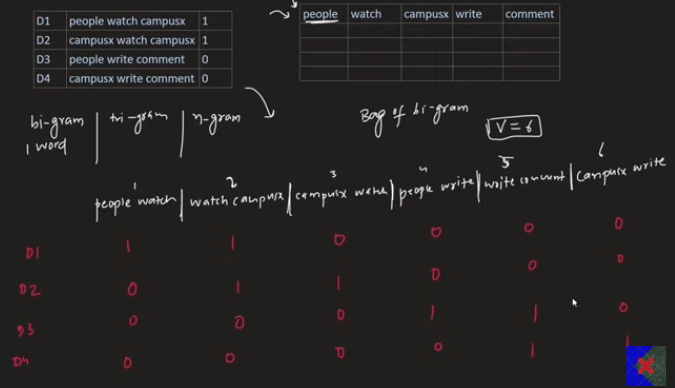 D1 people watch campusx 1
D2 campusx watch campusx 1
D3 people write comment 0
D4 campusx write comment 0
people watch campusx write comment
bi-gram | tri-gram | n-gram
1 word
Bag of bi-gram
V = 6
1 2 3 4 5 6
people watch | watch campusx | campusx watch | people write | write comment | campusx write
D1 1 1 0 0 0 0
D2 0 1 1 0 0 0
D3 0 0 0 1 1 0
D4 0 0 0 0 1 1